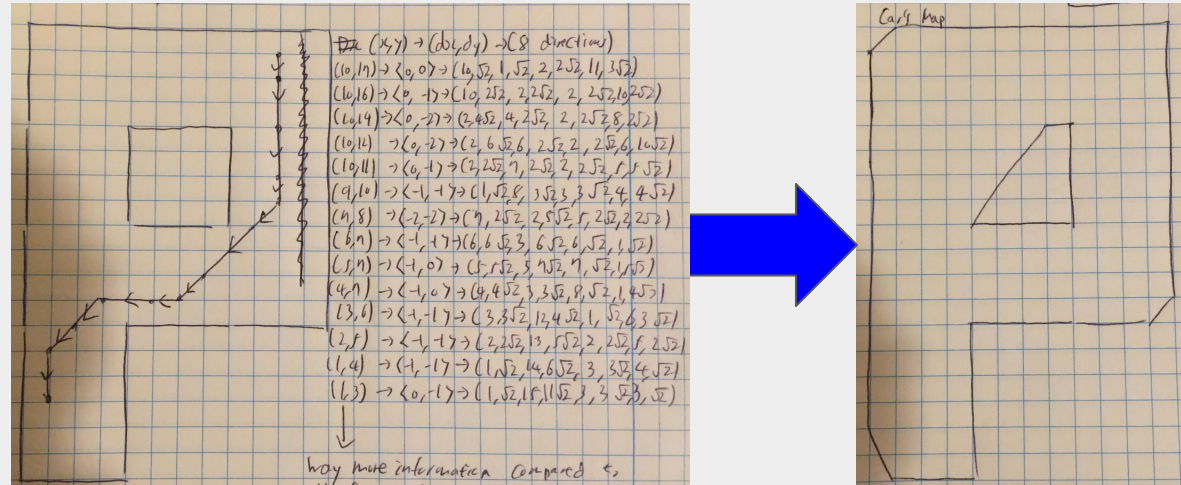 (x,y) → (dx,dy) → (8 directions)
(10,17) → <0,0> → (10,√2,1,√2,2,2√2,11,3√2)
(10,16) → <0,-1> → (10,2√2,2,2√2,2,2√2,10,2√2)
(10,14) → <0,-2> → (2,4√2,4,2√2,2,2√2,8,2√2)
(10,12) → <0,-2> → (2,6√2,6,2√2,2,2√2,6,10√2)
(10,11) → <0,-1> → (2,2√2,7,2√2,2,2√2,5,5√2)
(9,10) → <-1,-1> → (1,√2,8,3√2,3,3√2,4,4√2)
(7,8) → <-2,-2> → (7,2√2,2,5√2,5,2√2,2,2√2)
(6,7) → <-1,-1> → (6,6√2,3,6√2,6,√2,1,√2)
(5,7) → <-1,0> → (5,5√2,3,7√2,7,√2,1,5√2)
(4,7) → <-1,0> → (4,4√2,3,3√2,8,√2,1,4√2)
(3,6) → <-1,-1> → (3,3√2,12,4√2,1,√2,6,3√2)
(2,5) → <-1,-1> → (2,2√2,13,5√2,2,2√2,5,2√2)
(1,4) → <-1,-1> → (1,√2,14,6√2,3,3√2,4,√2)
(1,3) → <0,-1> → (1,√2,15,11√2,3,3√2,3,√2)
way more information compared to
Car's Map